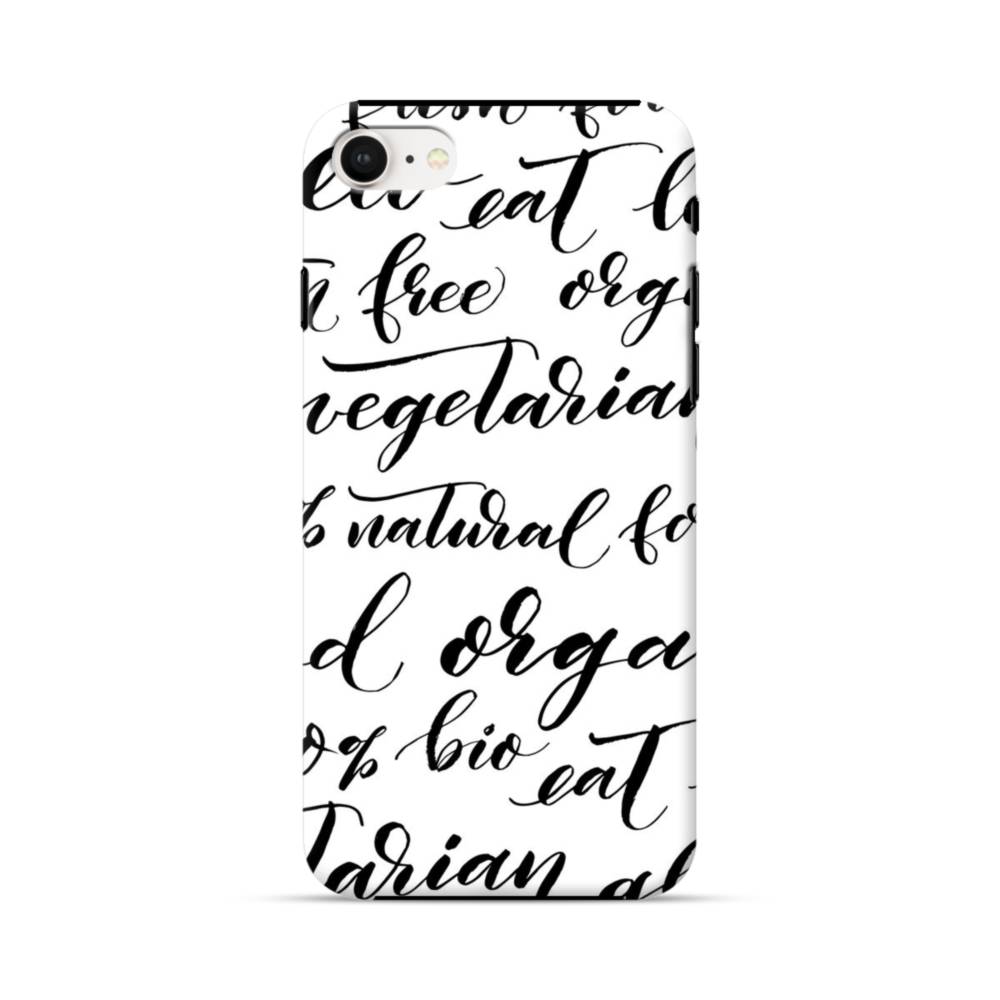 eat
free orga
vegetarian
% natural fo
d orga
0% bio eat
tarian